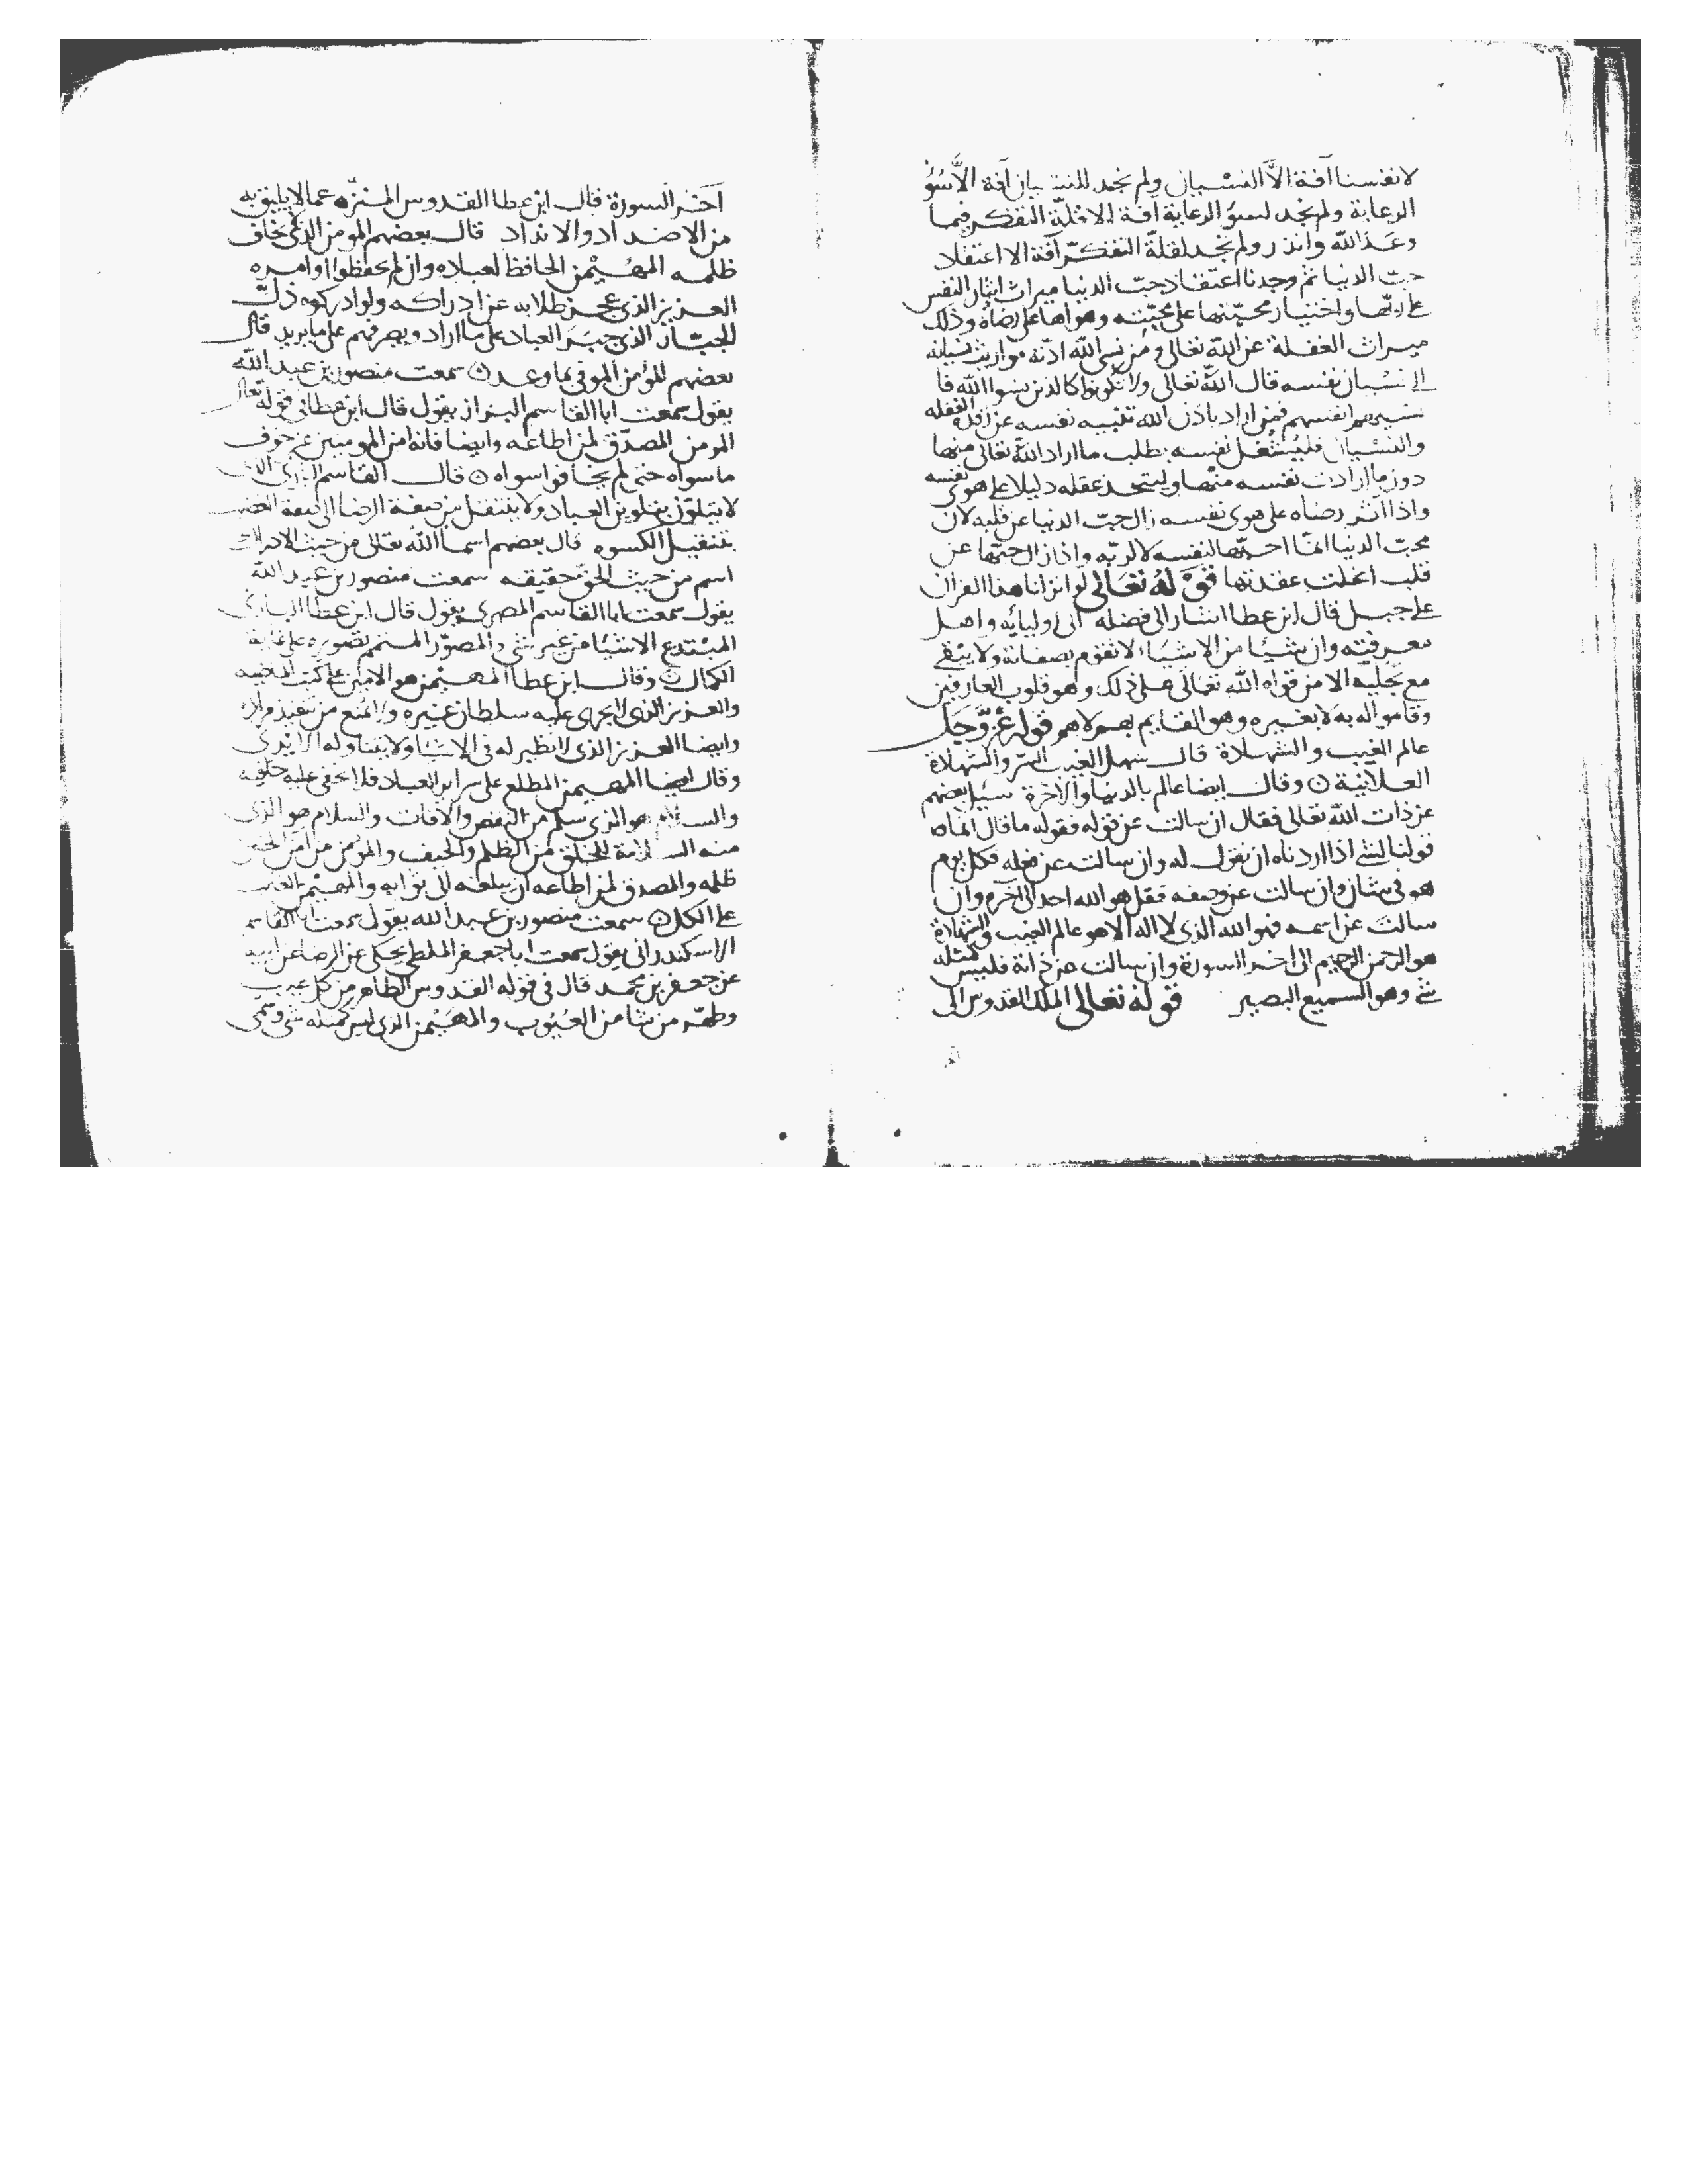 لانفسنا آفة الا النسيان ولم نجد للنسيان آفة الا سُوء
الرعاية ولم نجد لسوء الرعاية آفة الا قلّة التفكر فيما
وعَد الله وانذر ولم نجد لقلة التفكّر آفة الا اعتقاد
حبّ الدنيا ثم وجدنا اعتقاد حبّ الدنيا ميراث ايثار النفس
على ربّها واختيار محبّتها على محبّته وهواها على رضاه وذلك
ميراث الغفلة عن الله تعالى ومن نسى الله ادّته مواريث نسيانه
الى نسيان نفسه قال الله تعالى ولا تكونوا كالذين نسوا الله فا
نسيهم انفسهم فمن اراد باذن الله تنبيه نفسه عن رقدة الغفله
والنسيان فليُشغل نفسه بطلب ما اراد الله تعالى منها
دون ما ارادت نفسه منها وليتخذ عقله دليلا على هوى نفسه
واذا آثر رضاه على هوى نفسه زال حبّ الدنيا عن قلبه لان
محبّ الدنيا انما احبّها لنفسه لا لربّه واذا زال حبّها عن
قلب انحلت عقدتها قوْلهُ تعَالى لو انزلنا هذا القران
على جبل قال ابن عطا اشار الى فضله الى اوليائه واهل
معرفته وان شيئا من الاشياء لا تقوم بصفاته ولا يبقى
مع تجليه الا من قواه الله تعالى على ذلك وهو قلوب العارفين
وقاموا له به لا بغيره وهو القايم بهم لا هم قوله عزّ وجَل
عالم الغيب والشهادة قال سهل الغيب السرّ والشهادة
العلانية ن وقال ايضا عالم بالدنيا والآخرة سئيل بعضهم
عن ذات الله تعالى فقال ان سالت عن قوله فقوله ما قال انما
قولنا لشى اذا اردناه ان نقول له وان سالت عن فعله فكل يوم
هو فى شان وان سالت عن وصفه فقل هو الله احد الى آخره وان
سالت عن اسمه فهو الله الذى لا اله الا هو عالم الغيب والشهادة
هو الرحمن الرحيم الى اخر السورة وان سالت عن ذاته فليس كمثله
شى وهو السميع البصير قوله تعالى الملك القدوس الى
آخر السورة قال ابن عطا القدوس المنزّه عما لا يليق به
من الاضداد والانداد قال بعضهم المومن الذى لا يخاف
ظلمه المهيْمن الحافظ لعباده وان لم يحفظوا اوامره
العزيز الذى عجز طلابه عن ادراكه ولو ادركوه ذلّ
الجبّار الذى جبَر العباد على ما اراد ويصرفهم على ما يريد قال
بعضهم المؤمن الموفى بما وعد ن سمعت منصور بن عبد الله
يقول سمعت ابا القاسم البزاز يقول قال ابن عطا فى قوله تعالى
المومن المصدّق لمن اطاعه وايضا فانه امن المومنين عن خوف
ما سواه حتى لم يخافوا سواه ن قال القاسم الذى
لا يتلوّن بتلوين العباد ولا ينتقل من صفة الرضا الى صفة الغضب
قال بعضهم اسما الله تعالى من حيث الادراك
اسم من حيث الحق حقيقه سمعت منصور بن عبد الله
يقول سمعت ابا القاسم المصرى يقول قال ابن عطا البارى
المبْتدع الاشيا من غير شى والمصوّر المتمم تصويره على غاية
الكمال ن وقال ابن عطا المهيْمن هو الامين على
والعزيز الذى لا يجرى عليه سلطان غيره ولا يمنع من تنفيذ مراده
وايضا العزيز الذى لا نظير له فى الاشيا ولا يتناوله الايدى
وقال ايضا المهيمن المطلع على سراير العباد فلا تخفى عليه خافيه
والسلام هو الذى سلم من النقص والآفات والسلام هو الذى
منه السلامة للخلق من الظلم والحيف والمؤمن من امن الخلق
ظلمه والمصدق لمن اطاعه ان يبلغه الى ثوابه والمهيْمن
على الكل ن سمعت منصور بن عبد الله يقول سمعت ابا القاسم
الاسكندرانى يقول سمعت ابا جعفر الملطى يحكى عن الرضا عن ابيه
عن جعفر بن محمد قال فى قوله القدوس الطاهر من كل عيب
وطهّر من شا من العُيُوب والمهَيْمن الذى ليس كمثله شى